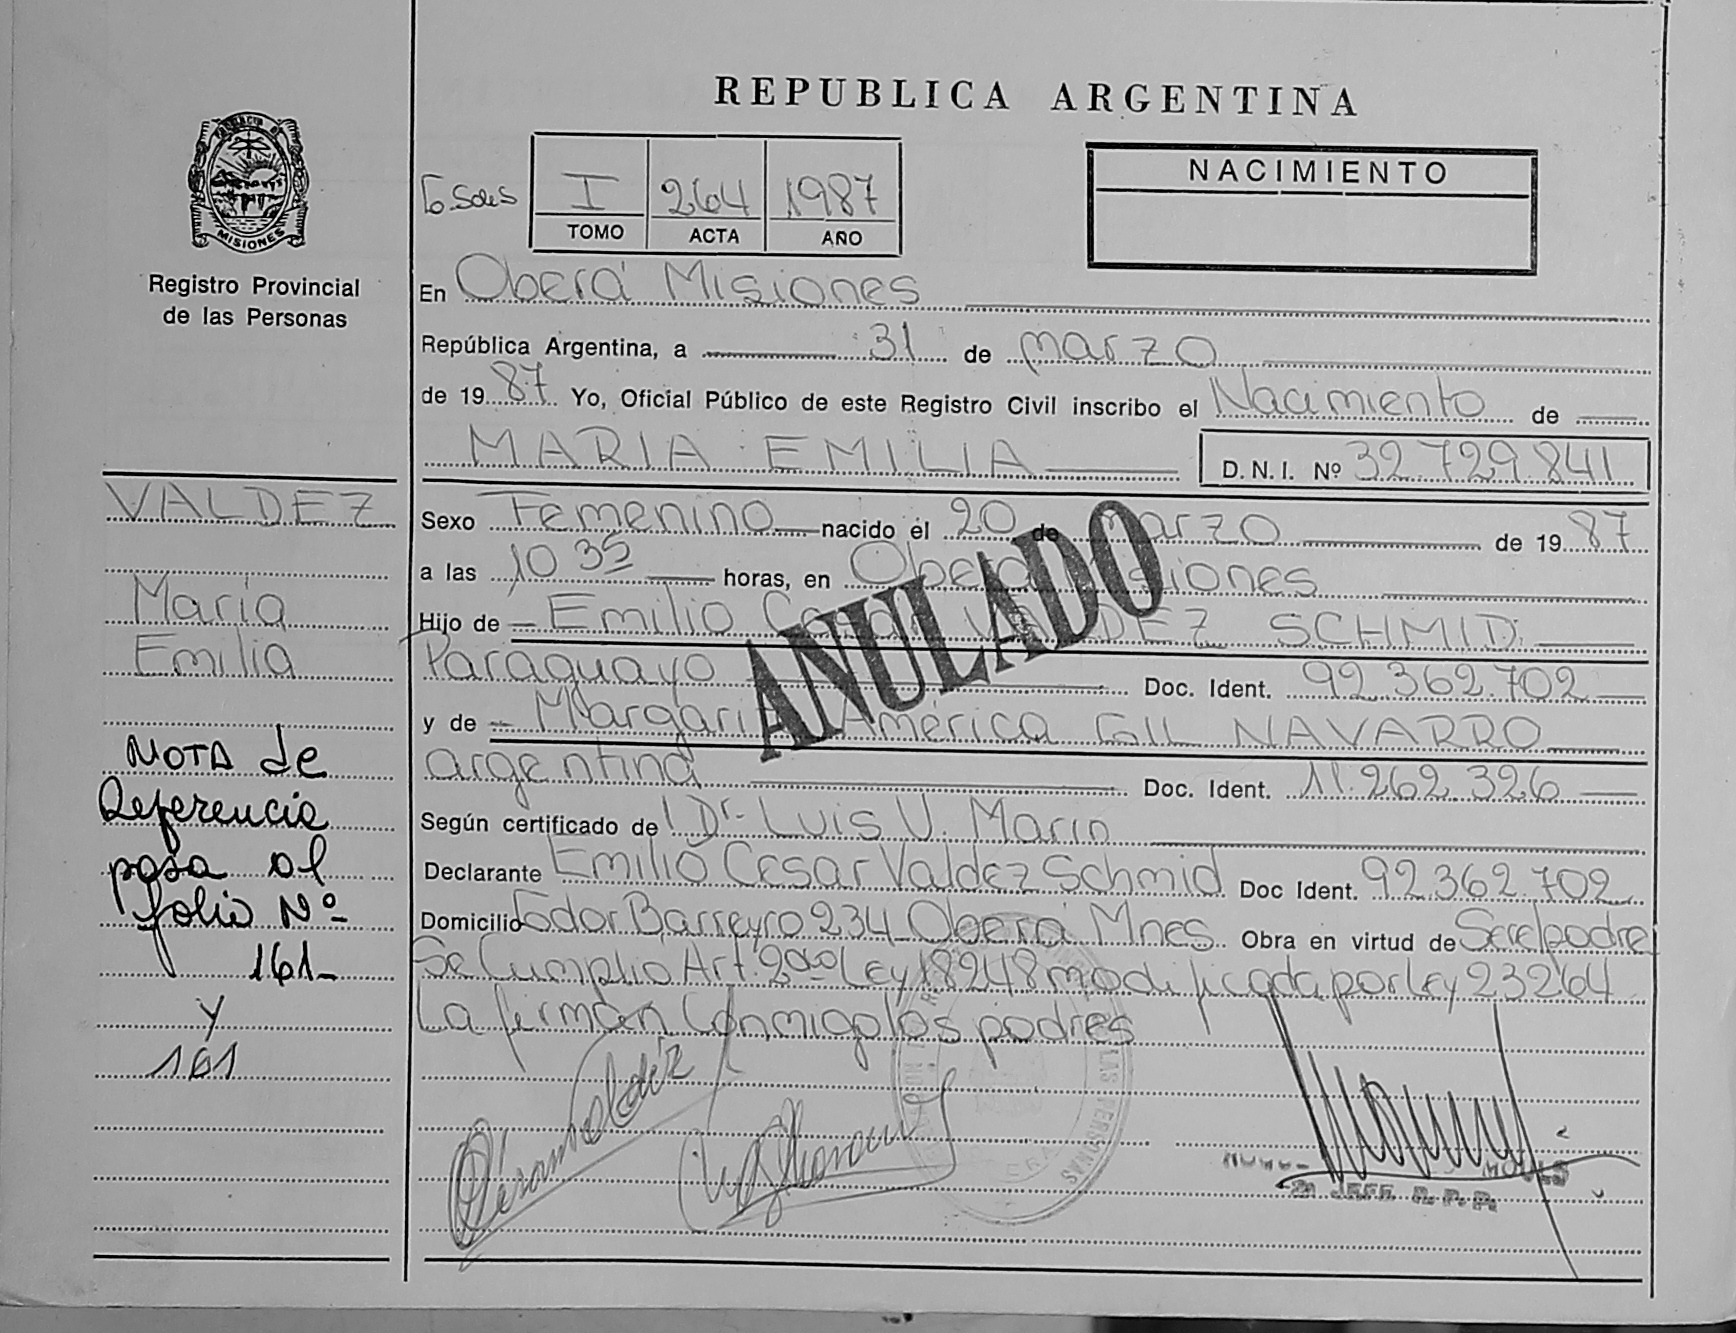 REPUBLICA ARGENTINA
PROVINCIA DE
MISIONES
Registro Provincial
de las Personas
I 264 1987
TOMO ACTA AÑO
NACIMIENTO
En Oberá Misiones
República Argentina, a 31 de marzo
de 1987 Yo, Oficial Público de este Registro Civil inscribo el Nacimiento de
MARIA EMILIA D.N.I. Nº 32.729.841
VALDEZ
María
Emilia
NOTA de
Referencia
pasa al
folio Nº
161-
y
161
Sexo Femenino nacido el 20 de marzo de 1987
a las 10 35 horas, en Oberá Misiones
Hijo de Emilio VALDEZ SCHMID
Paraguayo Doc. Ident. 92.362.702
y de Margarita América GIL NAVARRO
argentina Doc. Ident. 11.262.326
ANULADO
Según certificado de Dr. Luis V. Marin
Declarante Emilio Cesar Valdez Schmid Doc Ident. 92.362.702
Domicilio Fdor Barreyro 234 Oberá Mnes. Obra en virtud de Ser el padre
Se Cumplio Art. 2do Ley 18248 modificada por ley 23264
La firman Conmigo los padres
LAS PERSONAS
JEFE R. P. P.